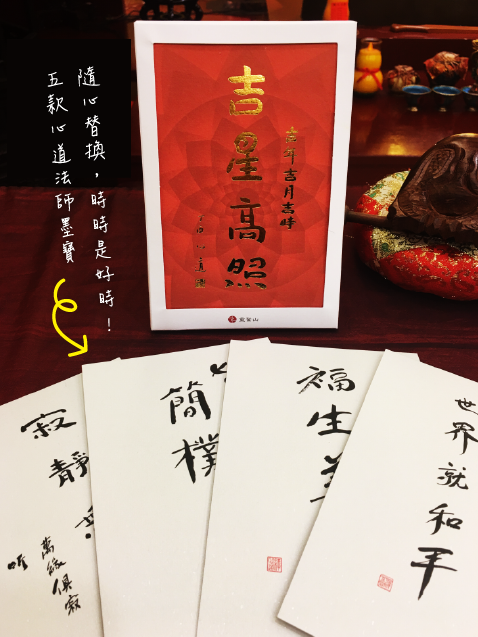 隨心替換，時時是好時！
五款心道法師墨寶
吉星高照
吉年吉月吉時
靈鷲山
寂
靜
萬緣俱寂
听
簡
樸
福
生
世界就和平